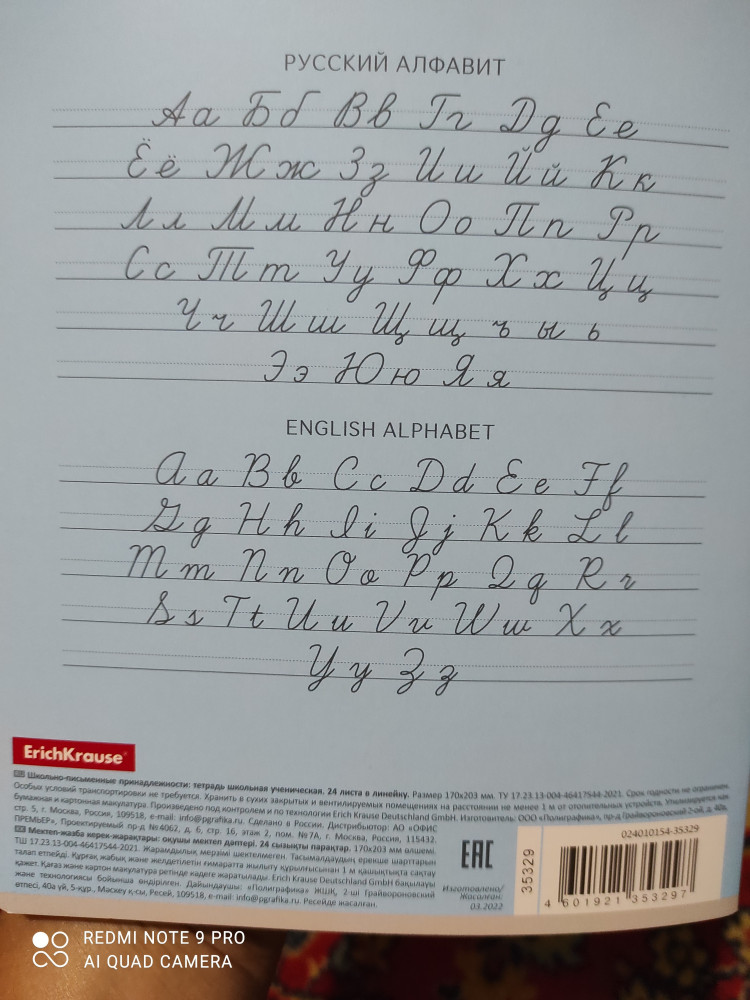 РУССКИЙ АЛФАВИТ
Аа Бб Вв Гг Дд Ее
Ёё Жж Зз Ии Йй Кк
Лл Мм Нн Оо Пп Рр
Сс Тт Уу Фф Хх Цц
Чч Шш Щщ ъ ы ь
Ээ Юю Яя
ENGLISH ALPHABET
Aa Bb Cc Dd Ee Ff
Gg Hh Ii Jj Kk Ll
Mm Nn Oo Pp Qq Rr
Ss Tt Uu Vv Ww Xx
Yy Zz
ErichKrause
Школьно-письменные принадлежности: тетрадь школьная ученическая. 24 листа в линейку. Размер 170х203 мм. ТУ 17.23.13-004-46417544-2021. Срок годности не ограничен.
Особых условий транспортировки не требуется. Хранить в сухих закрытых и вентилируемых помещениях на расстоянии не менее 1 м от отопительных устройств. Утилизируется как
бумажная и картонная макулатура. Произведено под контролем и по технологии Erich Krause Deutschland GmbH. Изготовитель: ООО «Полиграфика», пр-д Грайвороновский 2-ой, д. 40а,
стр. 5, г. Москва, Россия, 109518, e-mail: info@pgrafika.ru. Сделано в России. Дистрибьютор: АО «ОФИС
ПРЕМЬЕР», Проектируемый пр-д №4062, д. 6, стр. 16, этаж 2, пом. №7А, г. Москва, Россия, 115432.
Мектеп-жазба керек-жарақтары: оқушы мектеп дәптері. 24 сызықты парақтар. 170х203 мм өлшемі.
ТШ 17.23.13-004-46417544-2021. Жарамдылық мерзімі шектелмеген. Тасымалдаудың ерекше шарттарын
талап етпейді. Құрғақ жабық және желдетілетін ғимаратта жылыту құрылғысынан 1 м қашықтықта сақтау
қажет. Қағаз және картон макулатура ретінде кәдеге жаратылады. Erich Krause Deutschland GmbH бақылауы
және технологиясы бойынша өндірілген. Дайындаушы: «Полиграфика» ЖШҚ, 2-ші Грайвороновский
өтпесі, 40а үй, 5-құр., Мәскеу қ-сы, Ресей, 109518, e-mail: info@pgrafika.ru. Ресейде жасалған.
EAC
Изготовлено/
Жасалған:
03.2022
35329
024010154-35329
4 601921 353297
REDMI NOTE 9 PRO
AI QUAD CAMERA